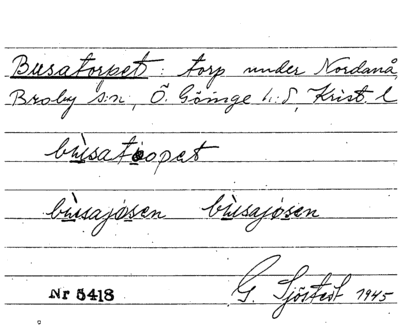 Busatorpet: torp under Nordanå,
Broby s:n, Ö. Göinge h:d, Krist. l
bùsatòopet
bùsajosen bùsajosen
Nr 5418 G. Sjöstedt 1945